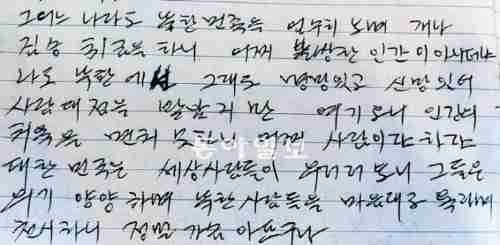 그어느 나라도 북한 민족은 업수히 보며 개나
짐승 취급을 하니 어찌 불쌍한 인간이 아니더냐
나도 북한에선 그래도 명망있고 신망있어
사람대접을 받았지만 여기오니 인간의
취욕을 면치 못하니 어찌 사람이라 하랴
대한민족은 세상사람들이 우러러보니 그들은
의기양양하며 북한사람들을 마음대로
천시하니 정말 가슴 아프구나
동아일보